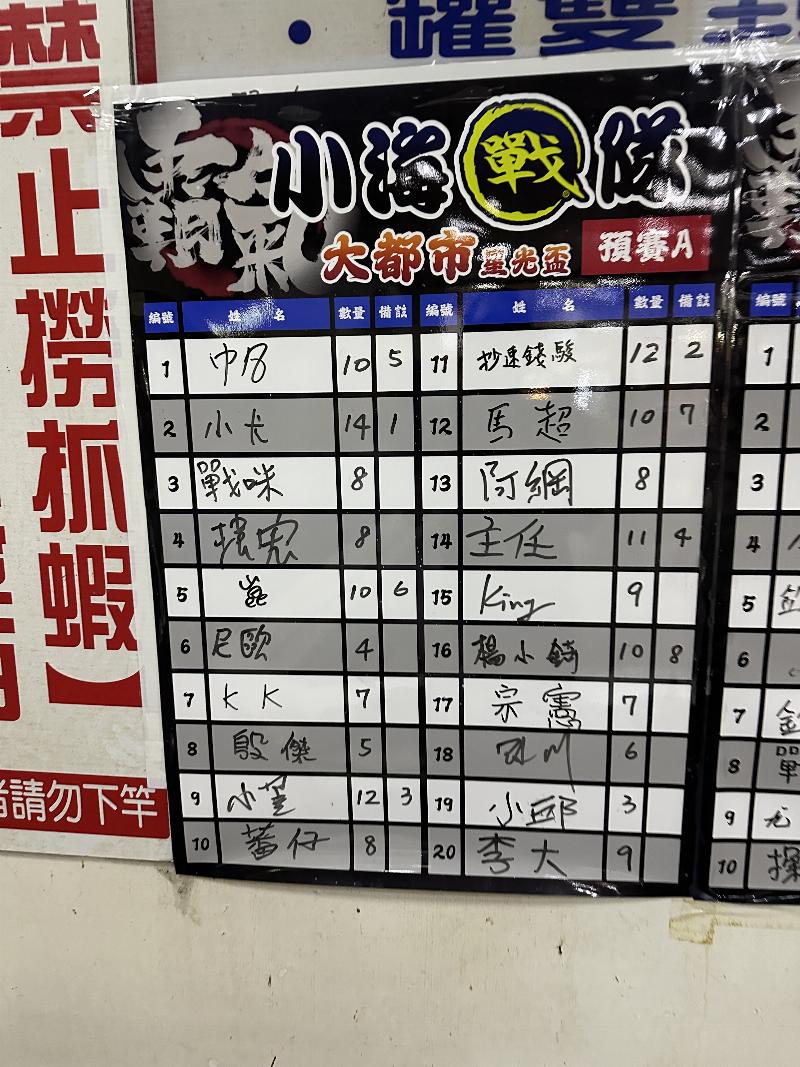 禁止撈抓蝦】
請勿下竿
・躍雙
霸氣
小海戰隊
大都市 星光盃 預賽A
編號 姓名 數量 備註 編號 姓名 數量 備註 編號
1 中凡 10 5 11 抄速錢駿 12 2 1
2 小尤 14 1 12 馬超 10 7 2
3 戰咪 8 13 阿綱 8 3
4 8 14 主任 11 4 4
5 崑 10 6 15 King 9 5
6 尼歐 4 16 楊小錡 10 8 6
7 KK 7 17 宗憲 7 7
8 殷傑 5 18 6 8 單
9 小 12 3 19 小邱 3 9
10 蕃仔 8 20 李大 9 10